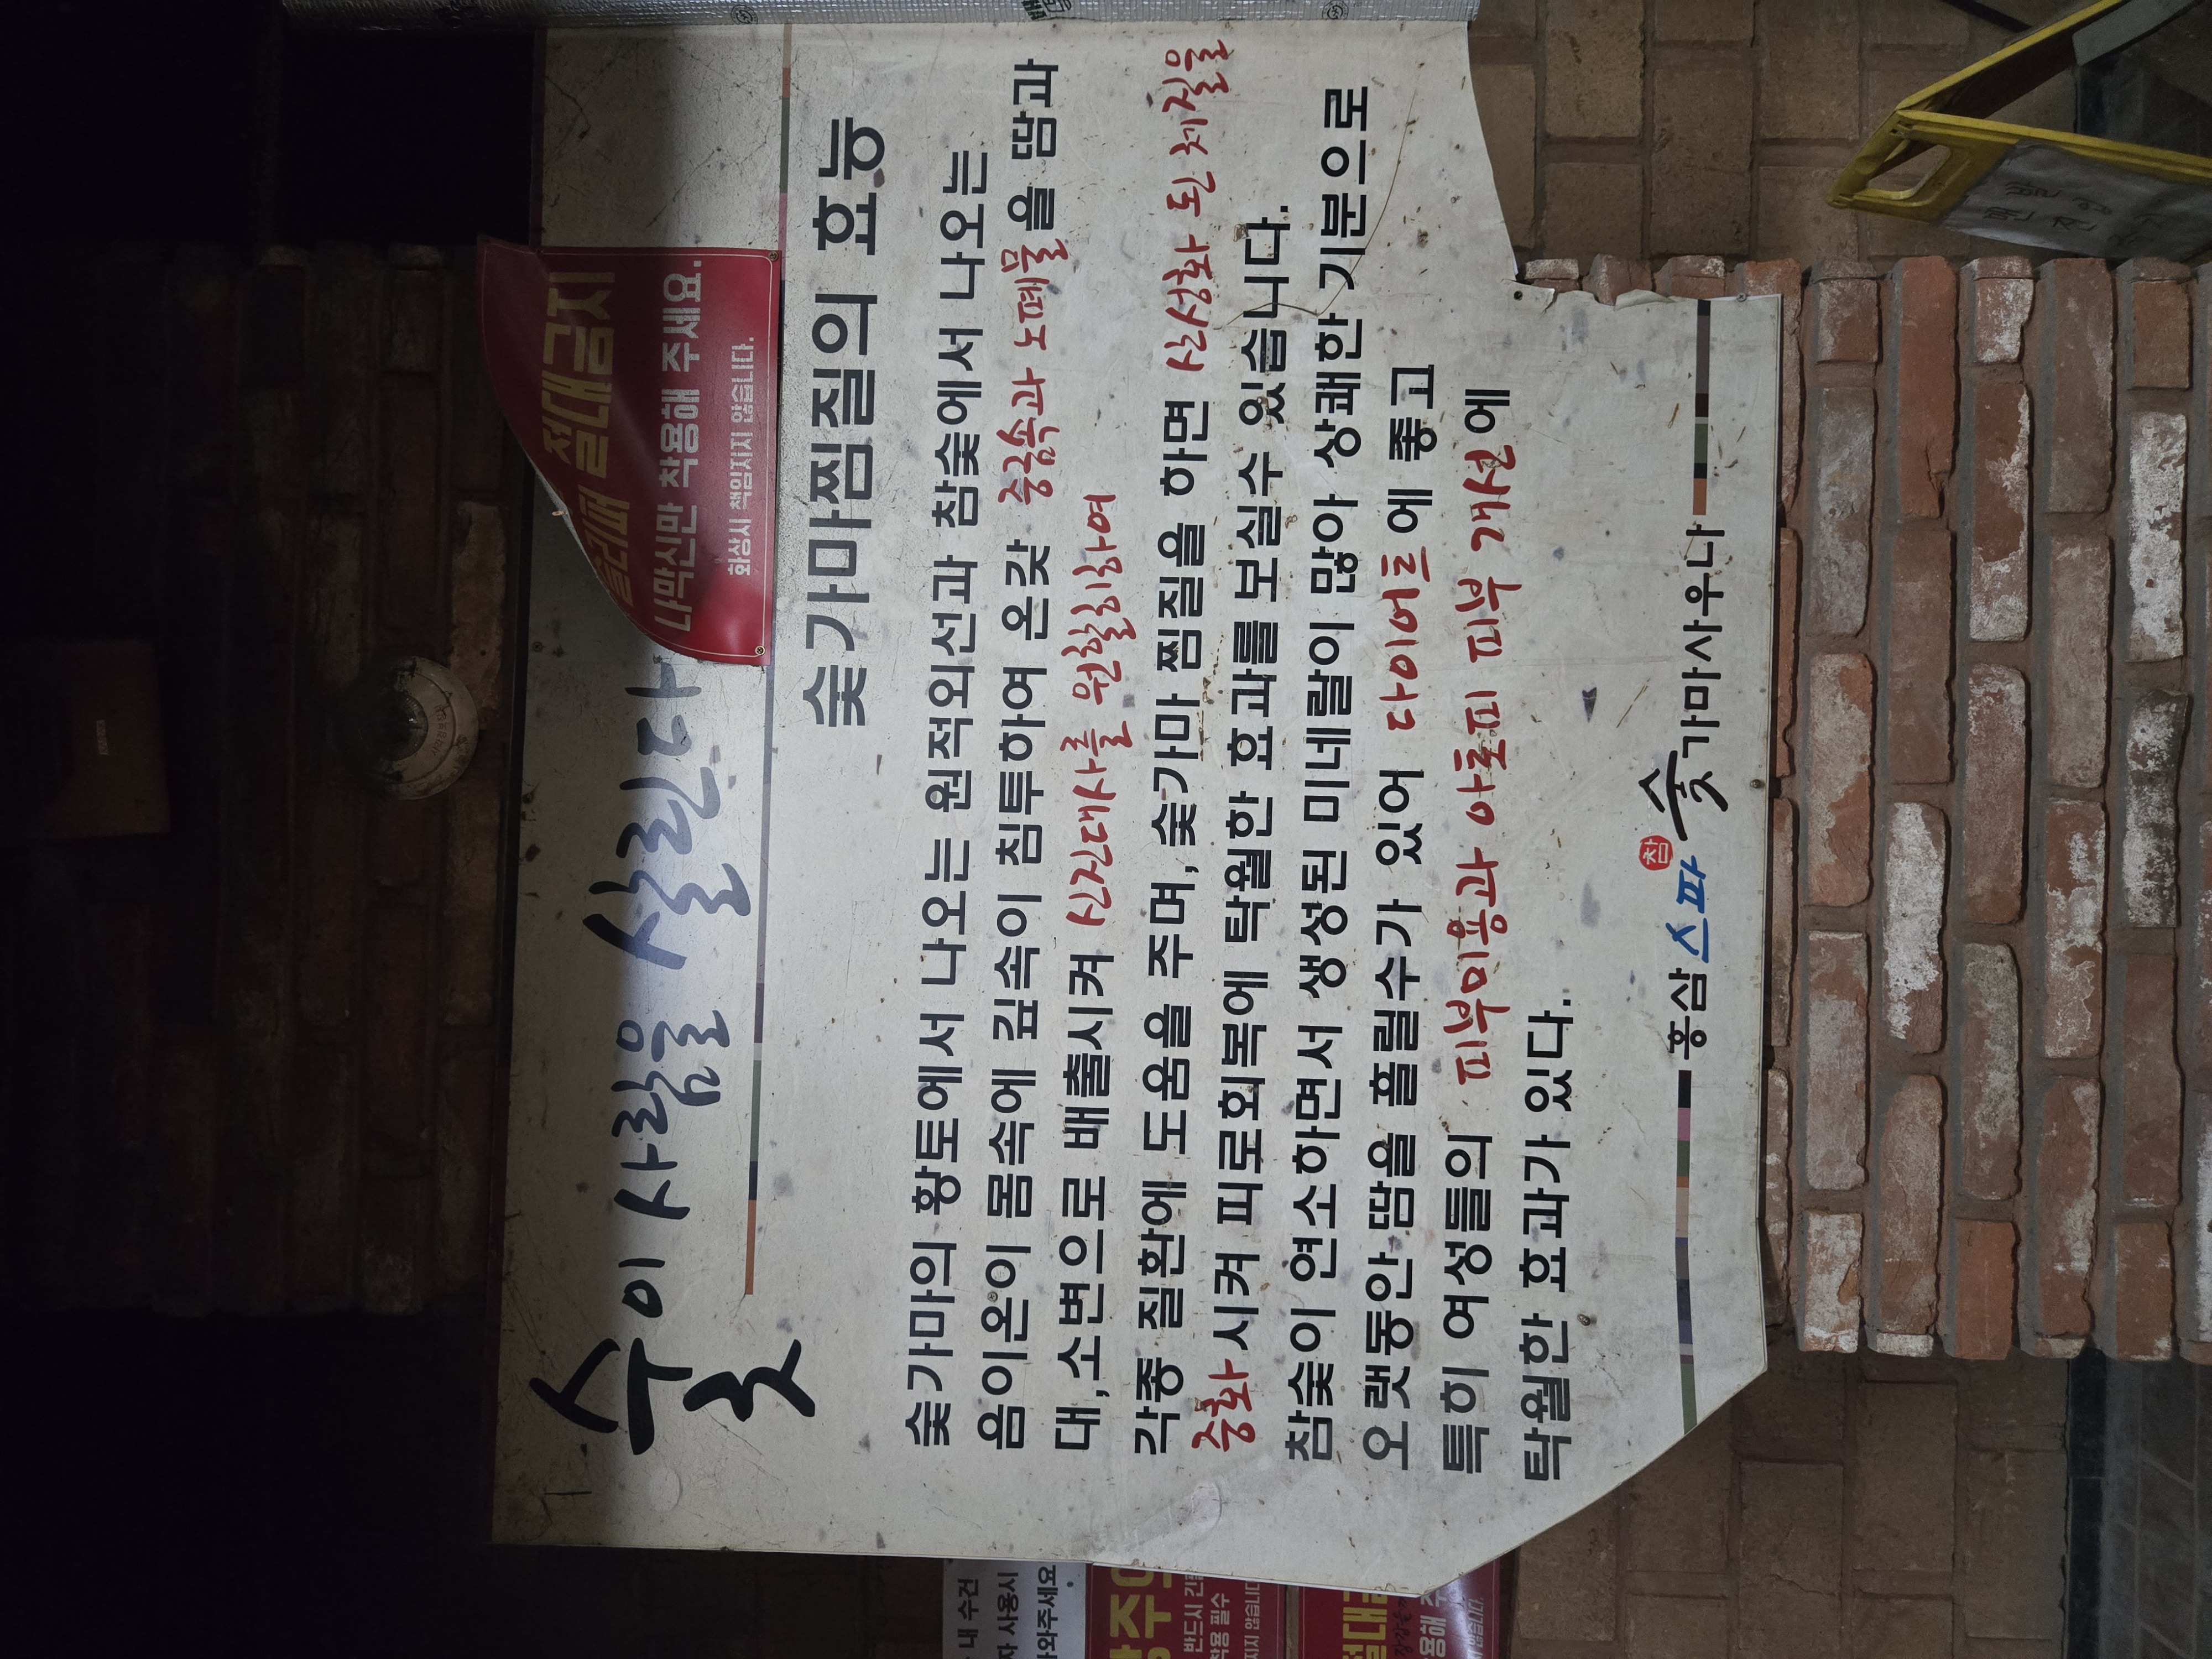 숯이 사람을 살린다
슬리퍼 절대금지
나막신만 착용해 주세요.
화상시 책임지지 않습니다.
숯가마찜질의 효능
숯가마의 황토에서 나오는 원적외선과 참숯에서 나오는
음이온이 몸속에 깊속이 침투하여 온갖 중금속과 노폐물을 땀과
대,소변으로 배출시켜 신진대사를 원할히하여
각종 질환에 도움을 주며, 숯가마 찜질을 하면 산성화 된 체질을
중화 시켜 피로회복에 탁월한 효과를 보실수 있습니다.
참숯이 연소하면서 생성된 미네랄이 많아 상쾌한 기분으로
오랫동안 땀을 흘릴수가 있어 다이어트에 좋고
특히 여성들의 피부미용과 아토피 피부 개선에
탁월한 효과가 있다.
홍삼 스파 참 숯가마사우나
내 수건
사용시
와주세요
반드시
착용 필수
않습니다